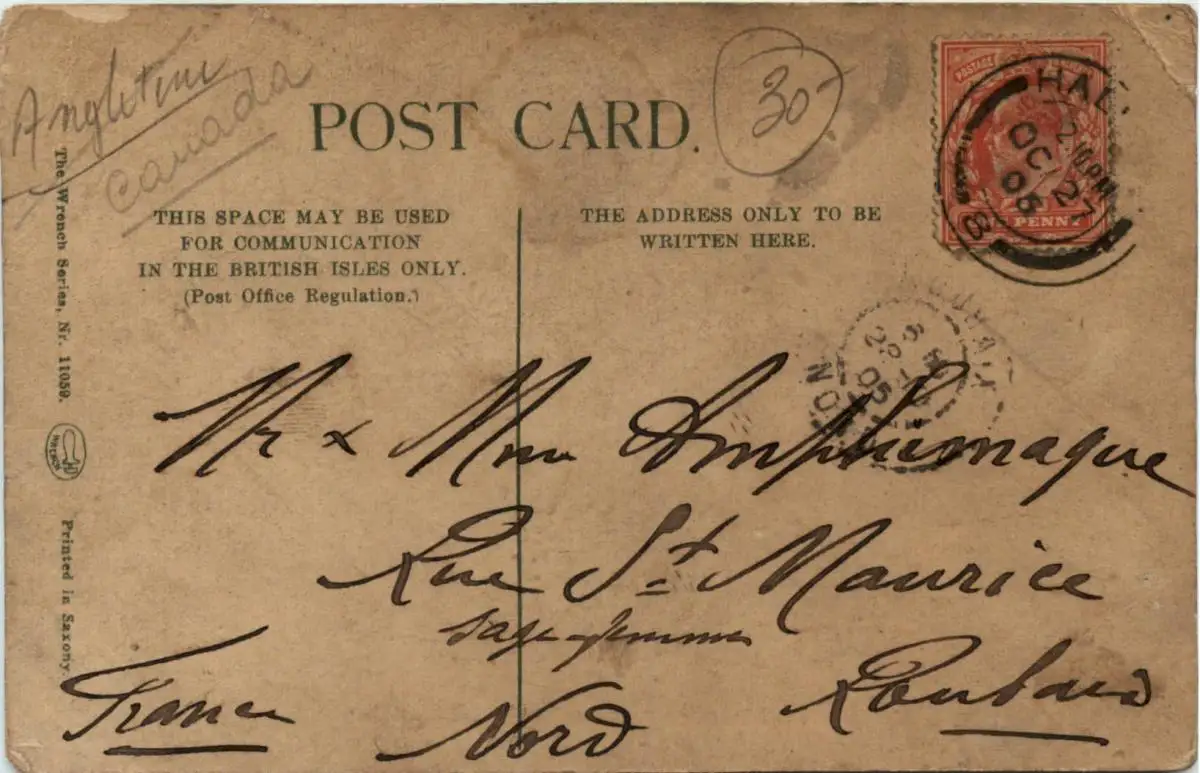 Angleterre
Canada
30-
POST CARD.
THIS SPACE MAY BE USED
FOR COMMUNICATION
IN THE BRITISH ISLES ONLY.
(Post Office Regulation.)
THE ADDRESS ONLY TO BE
WRITTEN HERE.
The Wrench Series, Nr. 11059.
Printed in Saxony.
POSTAGE
PENNY
2.10 PM
OC 27
05
8
Mr & Mme Amphimaque
Rue St Maurice
sage-femme
Roubaix
France
Nord